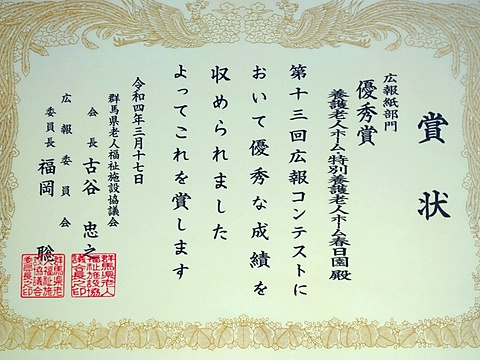 賞状
広報紙部門
優秀賞
養護老人ホーム・特別養護老人ホーム春日園殿
第十三回広報コンテストに
おいて優秀な成績を
収められました
よってこれを賞します
令和四年三月十七日
群馬県老人福祉施設協議会
会長 古谷忠之
広報委員会
委員長 福岡聡
群馬県老人
福祉施設協
議会長之印
群馬県老
人福祉施
設協議会
委員長之印